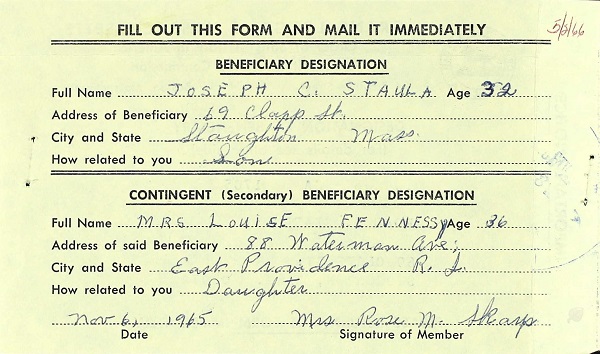 FILL OUT THIS FORM AND MAIL IT IMMEDIATELY
5/5/66
BENEFICIARY DESIGNATION
Full Name JOSEPH C. STAULA Age 32
Address of Beneficiary 69 Clapp St.
City and State Stoughton Mass.
How related to you Son
CONTINGENT (Secondary) BENEFICIARY DESIGNATION
Full Name MRS LOUISE FENNESSY Age 36
Address of said Beneficiary 88 Waterman Ave;
City and State East Providence R. I.
How related to you Daughter
Nov 6, 1965 Mrs Rose M. Sharp
Date Signature of Member